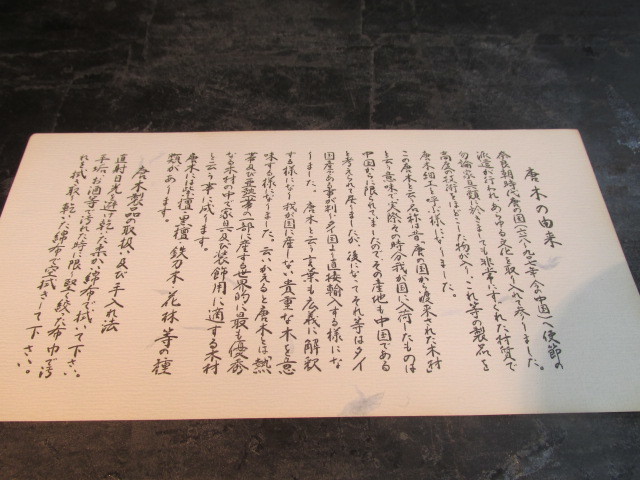 唐木の由来
奈良朝時代唐の国(六一八〜九〇七年今の中国)へ使節の
派遣が行われ、あらゆる文化を取り入れて参りました。
勿論家具類に於きましても非常にすぐれた材質で
高度の技術をほどこした物が入り、これ等の製品を
唐木細工と呼ぶ様になりました。
この唐木と云う名称は昔、唐の国から渡来された木材
と云う意味で実際その時分我が国に入荷したものは
中国から限られていましたので、その産地も中国である
と考えられて居りましたが、後になってそれ等はタイ
国産である事が判り、タイ国より直接輸入する様にな
りました。唐木と云う言葉も広義に解釈
する様になり、我が国に産しない貴重な木を意
味する様になりました。云いかえると唐木とは、熱
帯及亜熱帯の一部に産する世界的に最も優秀
なる木材の中で家具及び装飾用に適する木材
と云う事に成ります。
唐木には紫檀・黒檀・鉄刀木・花林等の種
類があります。
唐木製品の取扱い及び手入れ法
直射日光を避け乾いた柔かい綿布で拭いて下さい。
手垢、お酒等で汚れた時に限り、堅く絞った布巾で汚
れを拭き取り乾いた綿布で空拭きして下さい。